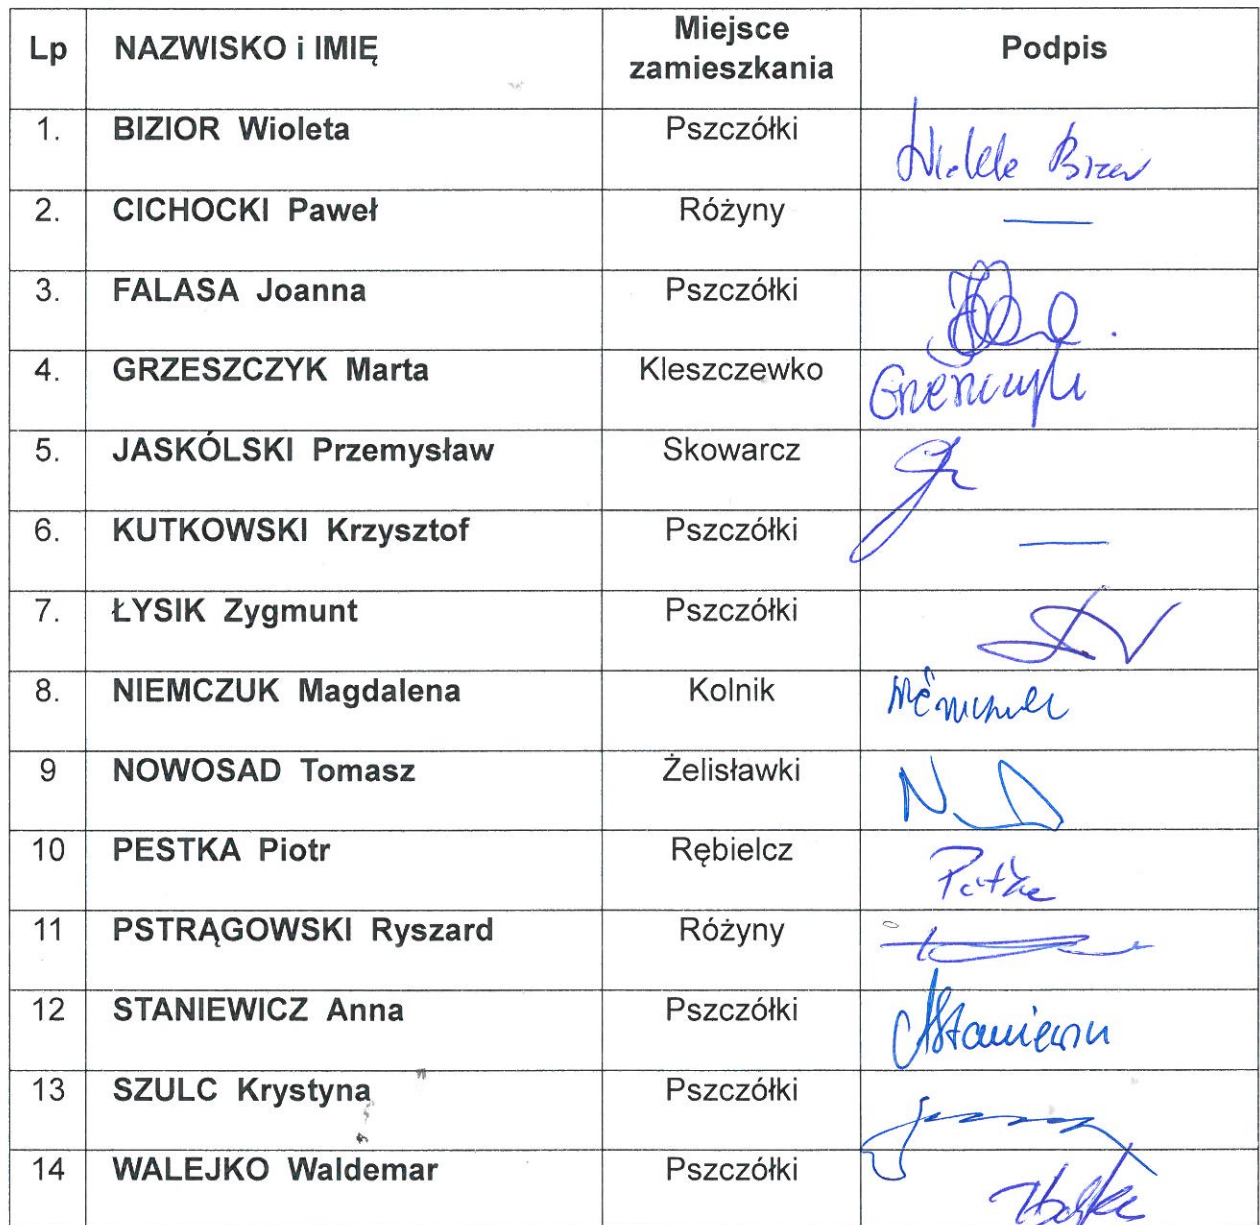 Lp NAZWISKO i IMIĘ Miejsce zamieszkania Podpis
1. BIZIOR Wioleta Pszczółki
2. CICHOCKI Paweł Różyny —
3. FALASA Joanna Pszczółki
4. GRZESZCZYK Marta Kleszczewko
5. JASKÓLSKI Przemysław Skowarcz
6. KUTKOWSKI Krzysztof Pszczółki —
7. ŁYSIK Zygmunt Pszczółki
8. NIEMCZUK Magdalena Kolnik
9 NOWOSAD Tomasz Żelisławki
10 PESTKA Piotr Rębielcz
11 PSTRĄGOWSKI Ryszard Różyny
12 STANIEWICZ Anna Pszczółki
13 SZULC Krystyna Pszczółki
14 WALEJKO Waldemar Pszczółki